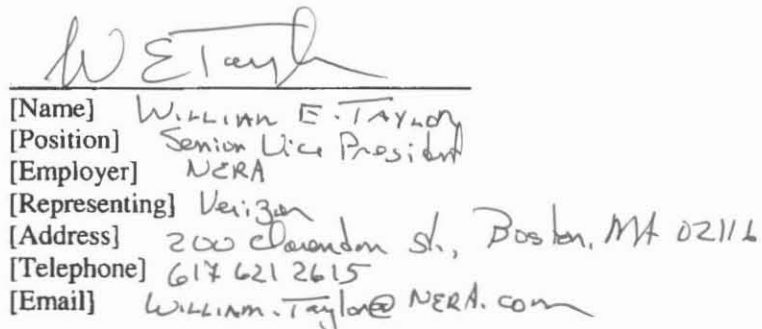 W E Taylor
[Name] WILLIAM E. TAYLOR
[Position] Senior Vice President
[Employer] NERA
[Representing] Verizon
[Address] 200 Clarendon St., Boston, MA 02116
[Telephone] 617 621 2615
[Email] WILLIAM.Taylor@NERA.com